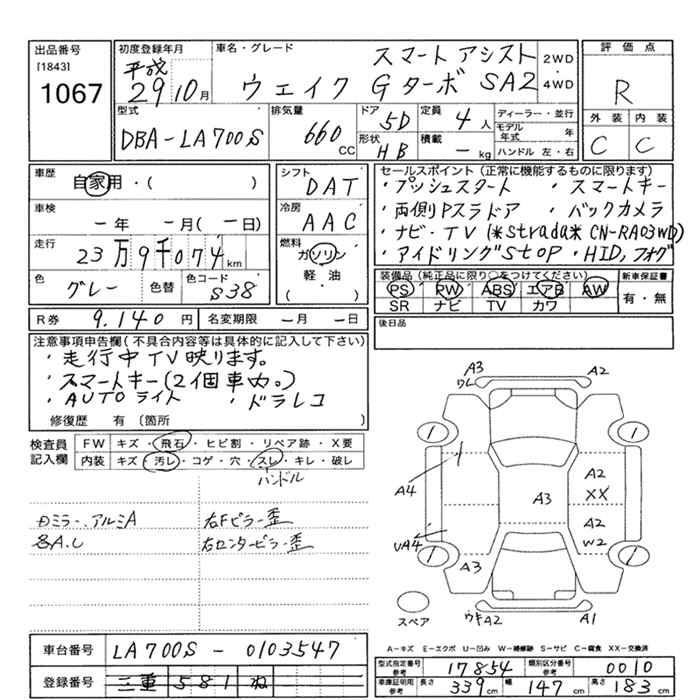 出品番号 初度登録年月 車名・グレード スマートアシスト 2WD 評価点
[1843] 平成
1067 29 10月 ウェイク GターボSA2 4WD R
型式 排気量 ドア 5D 定員 4人 ディーラー・並行 外装 内装
DBA-LA700S 660CC 形状 HB 積載 -kg モデル年式 年 C C
ハンドル 左・右
車歴 自家用・( ) シフト DAT セールスポイント(正常に機能するものに限ります)
・プッシュスタート ・スマートキー
車検 -年 -月(-日) 冷房 AAC ・両側Pスラドア ・バックカメラ
走行 23万9千074km 燃料 ガソリン ・ナビ・TV(*strada* CN-RA03WD)
軽・油 ・アイドリングstop ・HID,フォグ
色 グレー 色替 色コード S38 ( ・ ) 装備品(純正品に限り○をつけてください) 新車保証書
PS PW ABS エアB AW 有・無
SR ナビ TV カワ
R券 9.140円 名変期限 -月 -日 後日品
注意事項申告欄(不具合内容等は具体的に記入して下さい)
・走行中TV映ります。
・スマートキー(2個車内。)
・AUTOライト ・ドラレコ
修復歴 有〔箇所
検査員 FW キズ・飛石・ヒビ割・リペア跡・X要
記入欄 内装 キズ・汚レ・コゲ・穴・スレ・キレ・破レ
ハンドル
ロミラー.アルミA 右Fピラー歪
各A.U 右センターピラー歪
A3 A2
ワレ
1 1
A4 A3 A2
XX
A2
UA4 W2
1 1
A3
スペア ウキA2 A1
A-キズ E-エクボ U-凹み W-補修跡 S-サビ C-腐食 XX-交換済
車台番号 LA700S-0103547 型式指定番号 参考 17854 類別区分番号 参考 0010
登録番号 三重 581 ね 車庫証明用 参考 長さ 339cm 幅 147cm 高さ 183cm